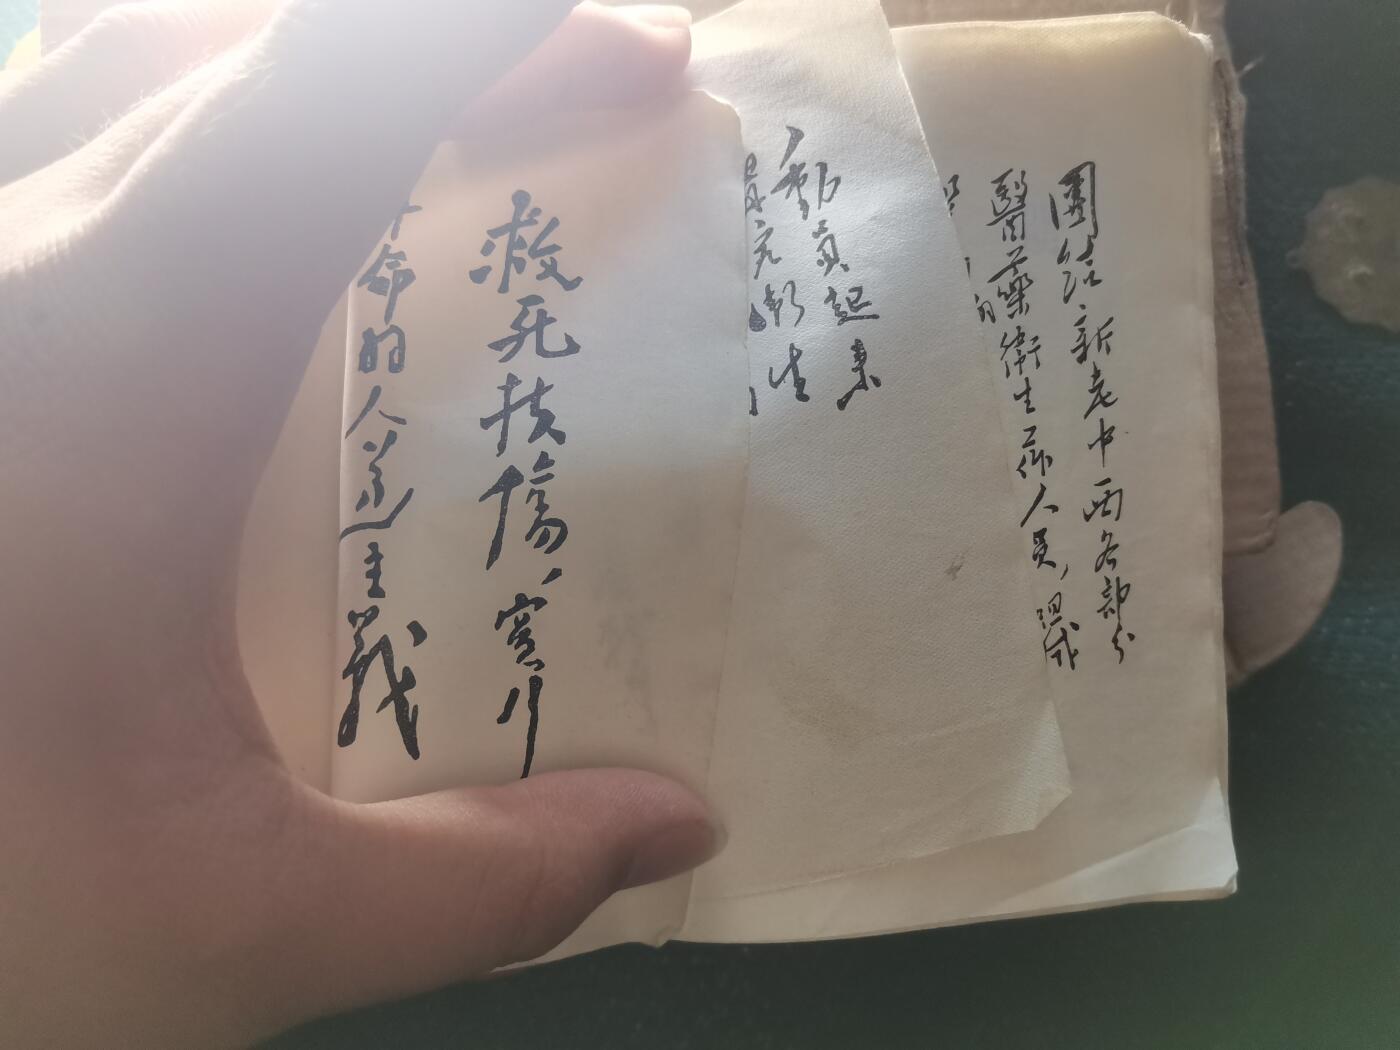 團结新老中西各部分
醫藥衛生工作人員，組成
的
動員起來
究衛生
救死扶傷，實行
命的人道主義